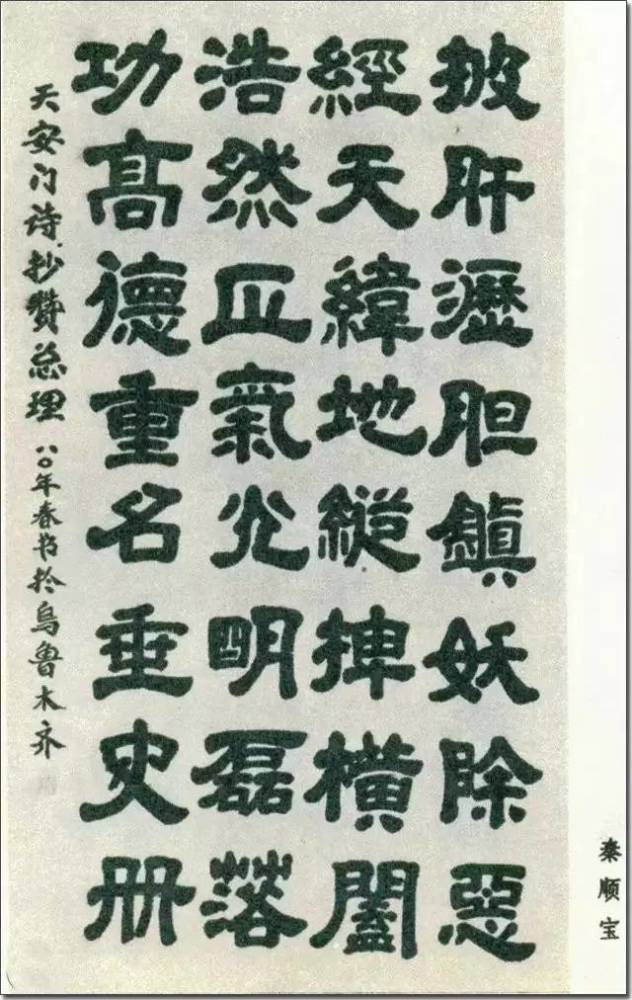 披肝瀝胆鎮妖除惡
經天緯地縱捭橫闔
浩然正氣光明磊落
功高德重名垂史册
天安门诗抄赞总理 八〇年春书於乌鲁木齐
秦顺宝